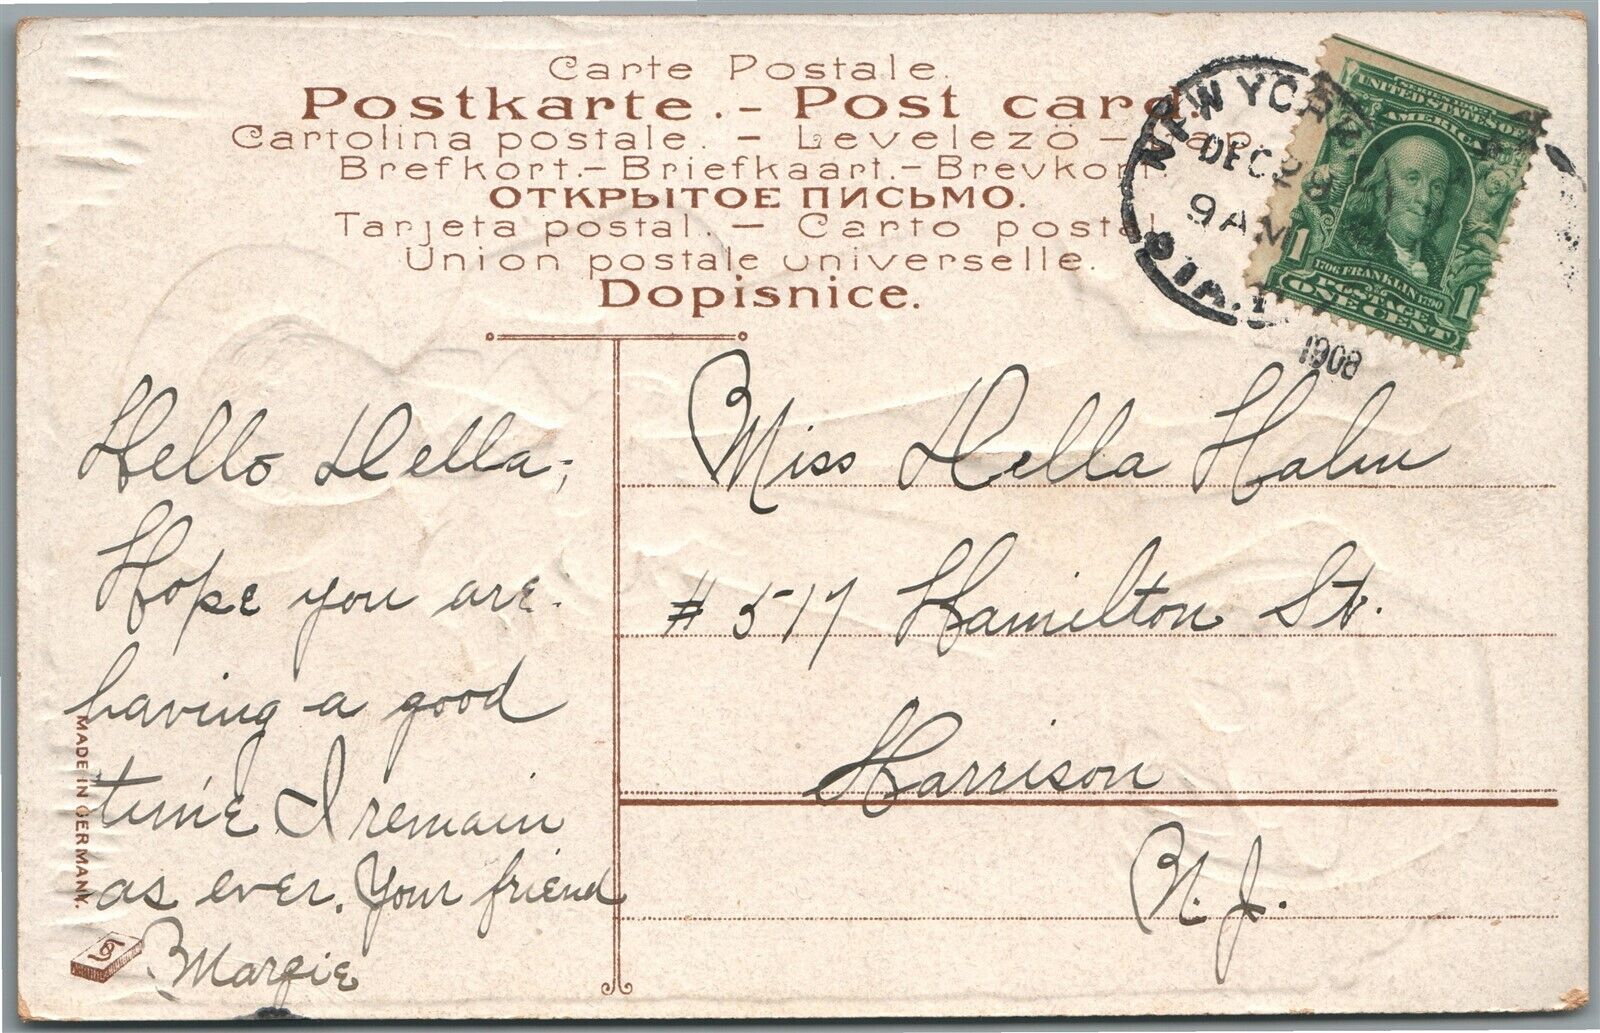 Carte Postale.
Postkarte. - Post card.
Cartolina postale. - Levelezö - Lap.
Brefkort. - Briefkaart. - Brevkort.
ОТКРЫТОЕ ПИСЬМО.
Tarjeta postal. - Carto postal.
Union postale universelle.
Dopisnice.
NEW YORK
DEC 28
9 AM
STA.
1908
SERIES 1902
UNITED STATES OF
AMERICA
1 1
1706 FRANKLIN 1790
POSTAGE
ONE CENT
Hello Della;
Hope you are.
having a good
time I remain
as ever. Your friend
Margie
Miss Della Halm
# 517 Hamilton St.
Harrison
N. J.
MADE IN GERMANY.